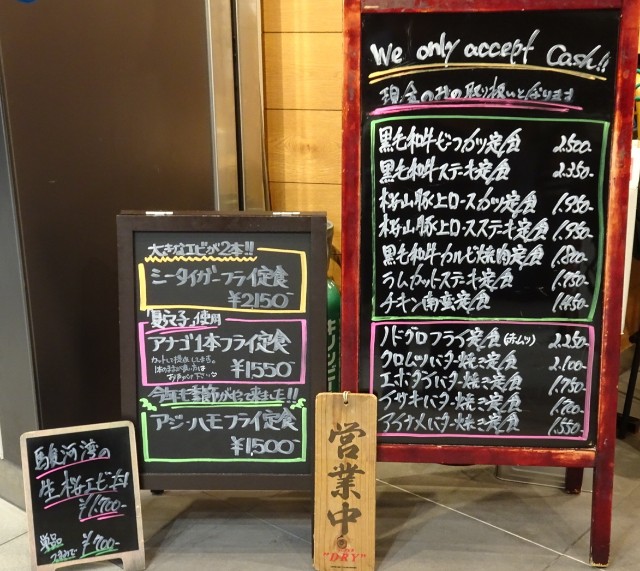 We only accept Cash!!
現金のみの取り扱いとなります
黒毛和牛ビーフカツ定食 2.500-
黒毛和牛ステーキ定食 2.350-
桜山豚上ロースカツ定食 1.950-
桜山豚上ロースステーキ定食 1.950-
黒毛和牛カルビ焼肉定食 1.800-
ラムカットステーキ定食 1.750-
チキン南蛮定食 1.450-
ノドグロフライ定食(赤ムツ) 2.250-
クロムツバター焼き定食 2.100-
エボダイバター焼き定食 1.750-
イサキバター焼き定食 1.700-
アイナメバター焼き定食 1.550-
大きなエビが2本!!
シータイガーフライ定食
¥2150-
使用
アナゴ1本フライ定食
¥1550-
今年も季節がやって来ました!!
アジ・ハモフライ定食
¥1500-
駿河湾の
生桜エビ
¥1,700-
単品
¥700-
営業中
"DRY"